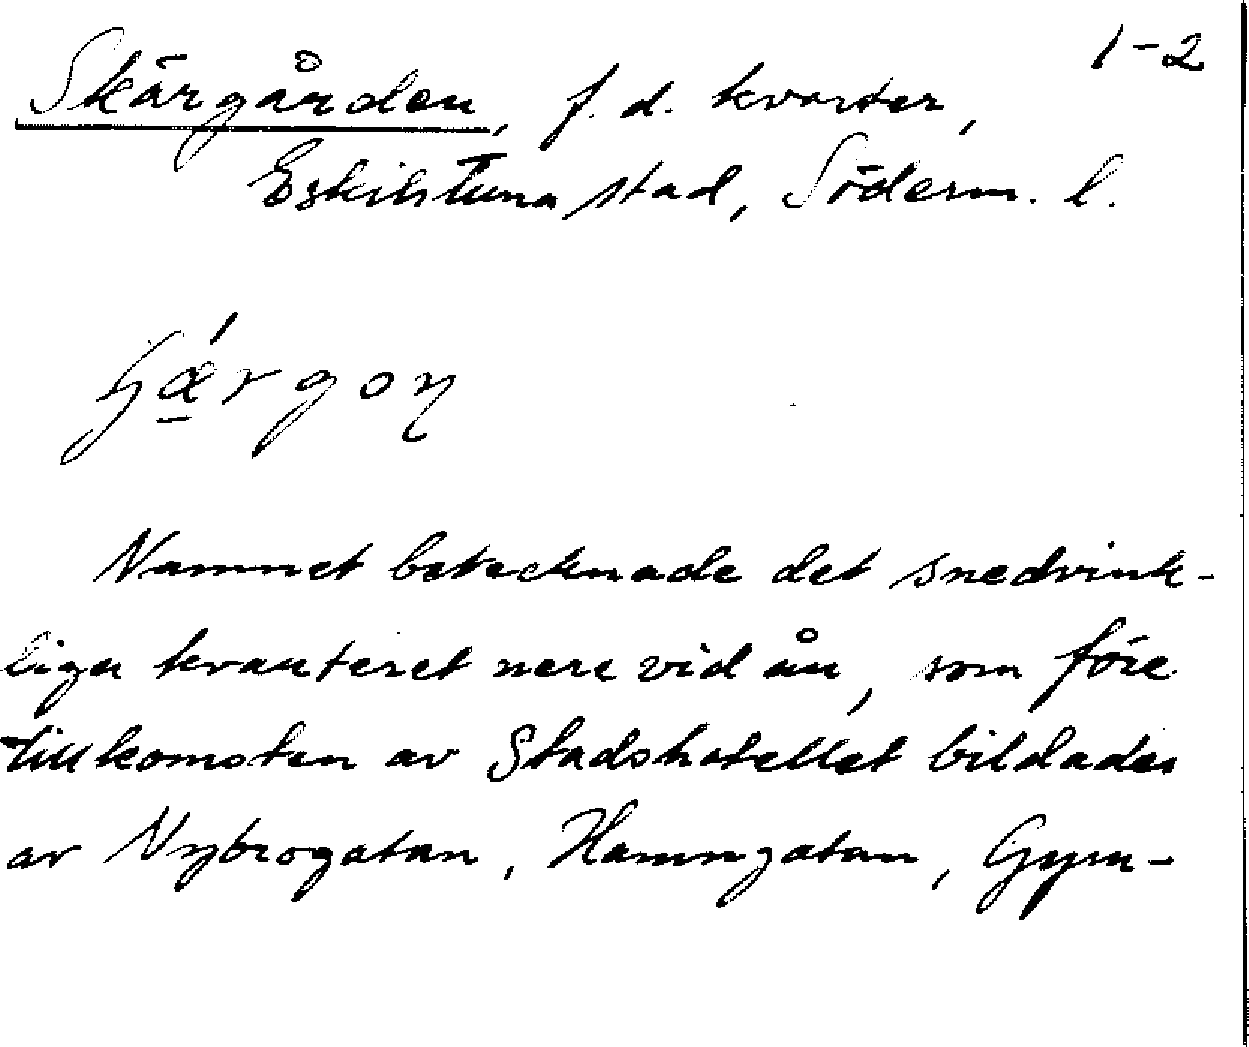 1-2
Skärgården, f.d. kvarter,
Eskilstuna stad, Söderm. l.
ɧǽ̱rgoŋ
Namnet betecknade det snedvink-
liga kvarteret nere vid ån, som före
tillkomsten av Stadshotellet bildades
av Nybrogatan, Hamngatan, Gym-